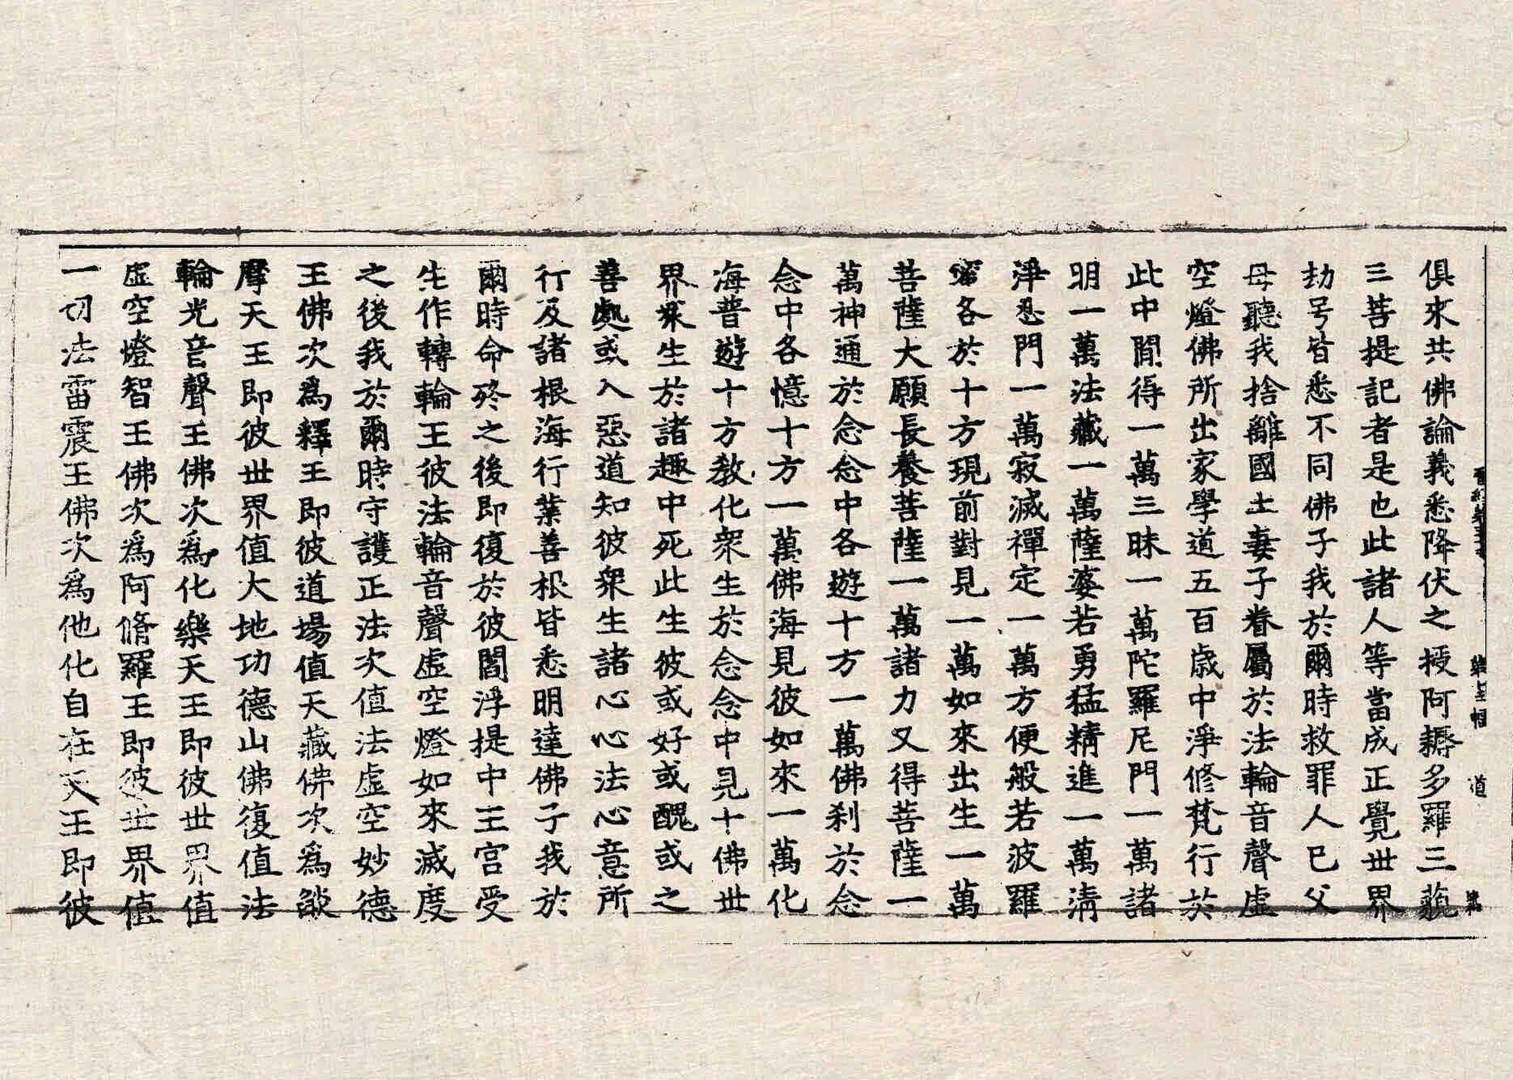 俱來共佛論義悉降伏之授阿耨多羅三藐
三菩提記者是也此諸人等當成正覺世界
劫号皆悉不同佛子我於爾時救罪人已父
母聽我捨離國土妻子眷屬於法輪音聲虛
空燈佛所出家學道五百歲中淨修梵行於
此中間得一萬三昧一萬陀羅尼門一萬諸
明一萬法藏一萬薩婆若勇猛精進一萬清
淨忍門一萬寂滅禪定一萬方便般若波羅
蜜各於十方現前對見一萬如來出生一萬
菩薩大願長養菩薩一萬諸力又得菩薩一
萬神通於念念中各遊十方一萬佛刹於念
念中各憶十方一萬佛海見彼如來一萬化
海普遊十方教化眾生於念念中見十佛世
界衆生於諸趣中死此生彼或好或醜或之
善處或入惡道知彼衆生諸心心法心意所
行及諸根海行業善根皆悉明達佛子我於
爾時命終之後即復於彼閻浮提中王宮受
生作轉輪王彼法輪音聲虛空燈如來滅度
之後我於爾時守護正法次值法虛空妙德
王佛次為釋王即彼道場值天藏佛次為燄
摩天王即彼世界值大地功德山佛復值法
輪光音聲王佛次為化樂天王即彼世界值
虛空燈智王佛次為阿脩羅王即彼世界值
一切法雷震王佛次為他化自在天王即彼